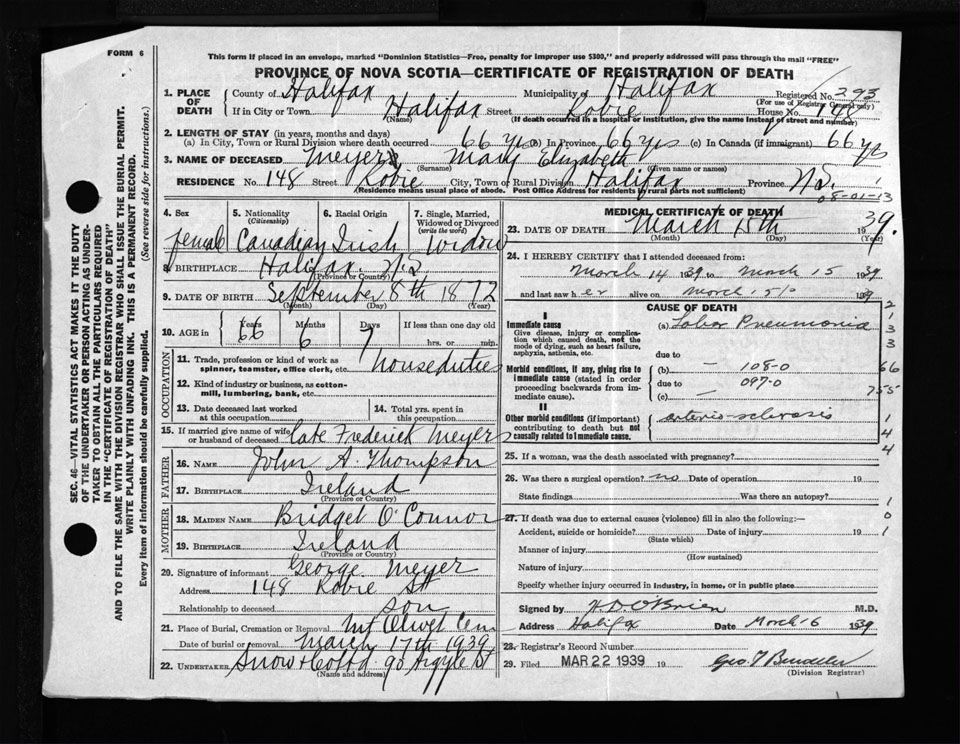 FORM 6
This form if placed in an envelope, marked "Dominion Statistics—Free, penalty for improper use $300," and properly addressed will pass through the mail "FREE"
PROVINCE OF NOVA SCOTIA—CERTIFICATE OF REGISTRATION OF DEATH
1. PLACE OF DEATH
County of Halifax Municipality of Halifax Registered No. 293
(For use of Registrar General only)
If in City or Town Halifax Street Robie House No. 148
(Name) (If death occurred in a hospital or institution, give the name instead of street and number)
2. LENGTH OF STAY (in years, months and days)
(a) In City, Town or Rural Division where death occurred 66 yrs (b) In Province 66 yrs (c) In Canada (if immigrant) 66 yrs
3. NAME OF DECEASED Meyers Mary Elizabeth
(Surname) (Given name or names)
RESIDENCE No. 148 Street Robie City, Town or Rural Division Halifax Province N.S.
(Residence means usual place of abode. Post Office Address for residents in rural parts not sufficient)
08-01-13
4. Sex female
5. Nationality (Citizenship) Canadian
6. Racial Origin Irish
7. Single, Married, Widowed or Divorced (write the word) widow
8. BIRTHPLACE Halifax N.S.
(Province or Country)
9. DATE OF BIRTH September 8th 1872
(Month) (Day) (Year)
10. AGE in Years 66 Months 6 Days 7 If less than one day old
hrs. or min.
OCCUPATION
11. Trade, profession or kind of work as spinner, teamster, office clerk, etc. houseduties
12. Kind of industry or business, as cotton-mill, lumbering, bank, etc.
13. Date deceased last worked at this occupation
14. Total yrs. spent in this occupation
15. If married give name of wife or husband of deceased late Frederick Meyers
FATHER
16. NAME John A. Thompson
17. BIRTHPLACE Ireland
(Province or Country)
MOTHER
18. MAIDEN NAME Bridget O'Connor
19. BIRTHPLACE Ireland
(Province or Country)
20. Signature of informant George Meyer
Address 148 Robie St
Relationship to deceased son
21. Place of Burial, Cremation or Removal Mt Olivet Cem
Date of burial or removal March 17th 1939
22. UNDERTAKER Snow & Co Ltd. 90 Argyle St
(Name and address)
MEDICAL CERTIFICATE OF DEATH
23. DATE OF DEATH March 15th 1939.
(Month) (Day) (Year)
24. I HEREBY CERTIFY that I attended deceased from
March 14 1939 to March 15 1939
and last saw her alive on March 15 1939
CAUSE OF DEATH
I
Immediate cause
Give disease, injury or complication which caused death, not the mode of dying, such as heart failure, asphyxia, asthenia, etc.
(a) Lobar Pneumonia
due to
Morbid conditions, if any, giving rise to immediate cause (stated in order proceeding backwards from immediate cause).
(b) — 108-0
due to 097-0
(c) —
II
Other morbid conditions (if important) contributing to death but not causally related to immediate cause.
arterio-sclerosis
2
1
3
3
66
755
1
4
4
25. If a woman, was the death associated with pregnancy?
26. Was there a surgical operation? no Date of operation 19
State findings Was there an autopsy?
1
0
1
27. If death was due to external causes (violence) fill in also the following:—
Accident, suicide or homicide? Date of injury 19
(State which)
Manner of injury
(How sustained)
Nature of injury
Specify whether injury occurred in industry, in home, or in public place
Signed by H. D. O'Brien M.D.
Address Halifax Date March 16 1939
28. Registrar's Record Number
29. Filed MAR 22 1939 19
(Division Registrar)
SEC. 46—VITAL STATISTICS ACT MAKES IT THE DUTY
OF THE UNDERTAKER OR PERSON ACTING AS UNDER-
TAKER TO OBTAIN ALL THE PARTICULARS REQUIRED
IN THE "CERTIFICATE OF REGISTRATION OF DEATH"
AND TO FILE THE SAME WITH THE DIVISION REGISTRAR WHO SHALL ISSUE THE BURIAL PERMIT.
WRITE PLAINLY WITH UNFADING INK. THIS IS A PERMANENT RECORD.
Every item of information should be carefully supplied. (See reverse side for instructions.)